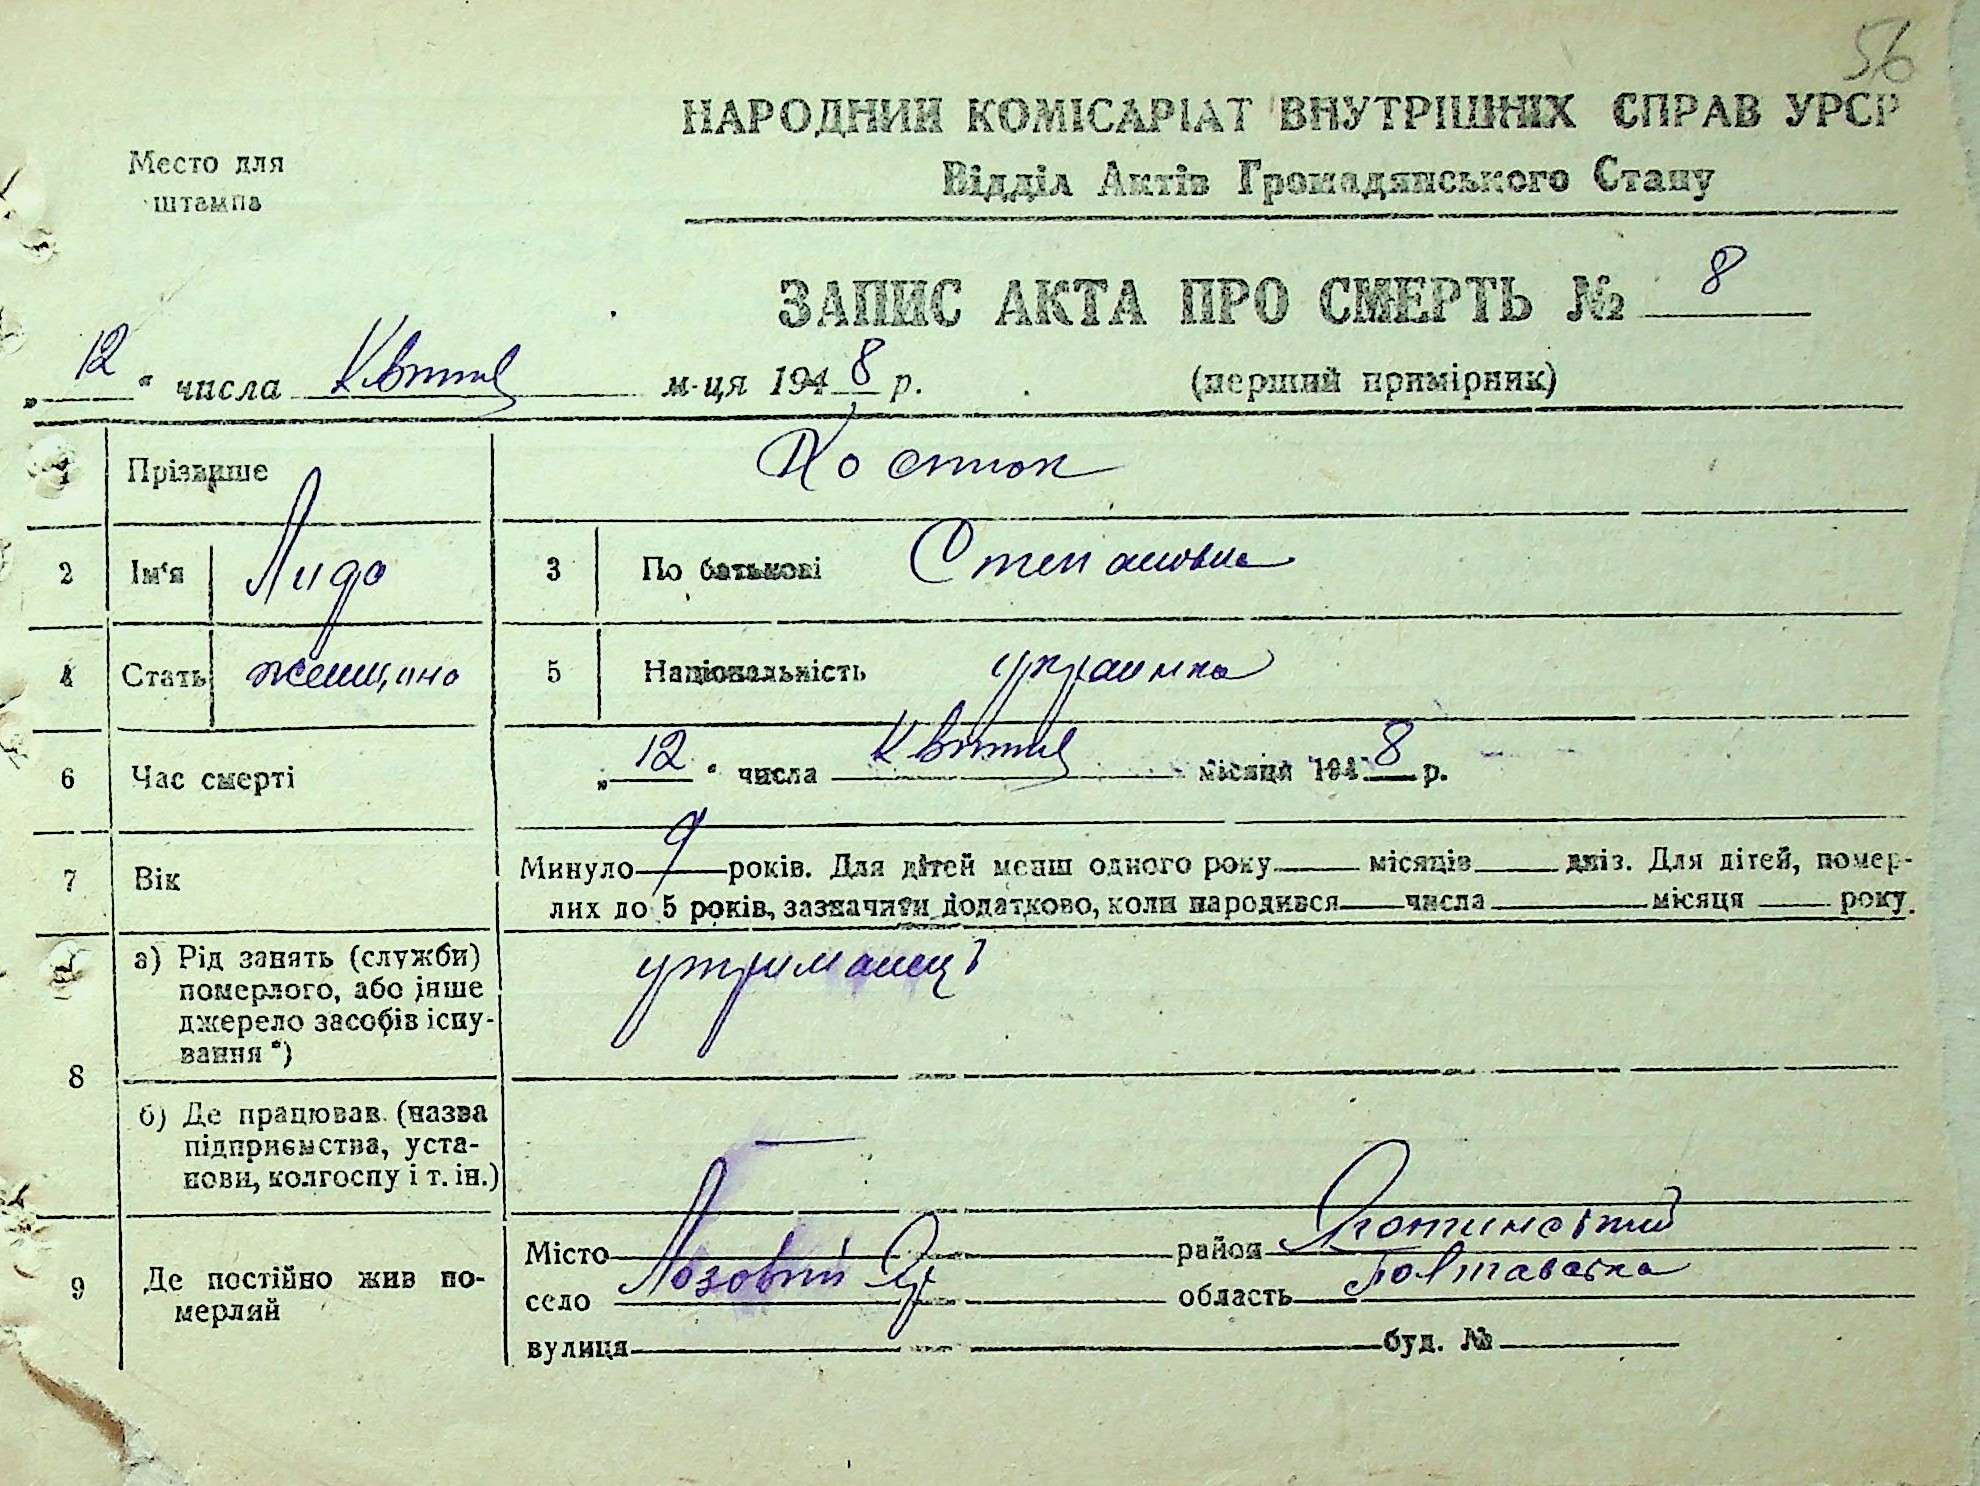 56
НАРОДНИЙ КОМІСАРІАТ ВНУТРІШНІХ СПРАВ УРСР
Место для
штампа
Відділ Актів Громадянського Стану
ЗАПИС АКТА ПРО СМЕРТЬ № 8
„12“ числа Квітня м-ця 1948 р. (перший примірник)
1 Прізвише Костюк
2 Ім'я Лида 3 По батькові Степановна
4 Стать женщина 5 Національність украинка
6 Час смерті „12“ числа Квітня місяця 1948 р.
7 Вік Минуло 9 років. Для дітей менш одного року місяців днів. Для дітей, помер-
лих до 5 років, зазначити додатково, коли народився числа місяця року.
8 а) Рід занять (служби)
померлого, або інше
джерело засобів існу-
вання *)
утриманець
б) Де працював (назва
підприємства, уста-
нови, колгоспу і т. ін.)
—
9 Де постійно жив по-
мерлий
Місто район Яготинський
село Лозовий Яр область Полтавська
вулиця буд. №